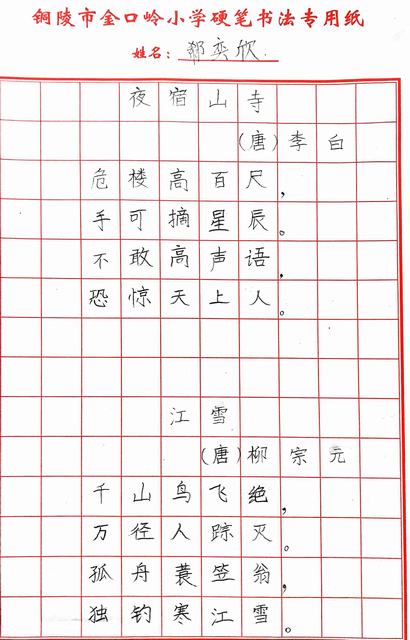 铜陵市金口岭小学硬笔书法专用纸
姓名：郗奕欣
夜宿山寺
（唐）李白
危楼高百尺，
手可摘星辰。
不敢高声语，
恐惊天上人。
江雪
（唐）柳宗元
千山鸟飞绝，
万径人踪灭。
孤舟蓑笠翁，
独钓寒江雪。